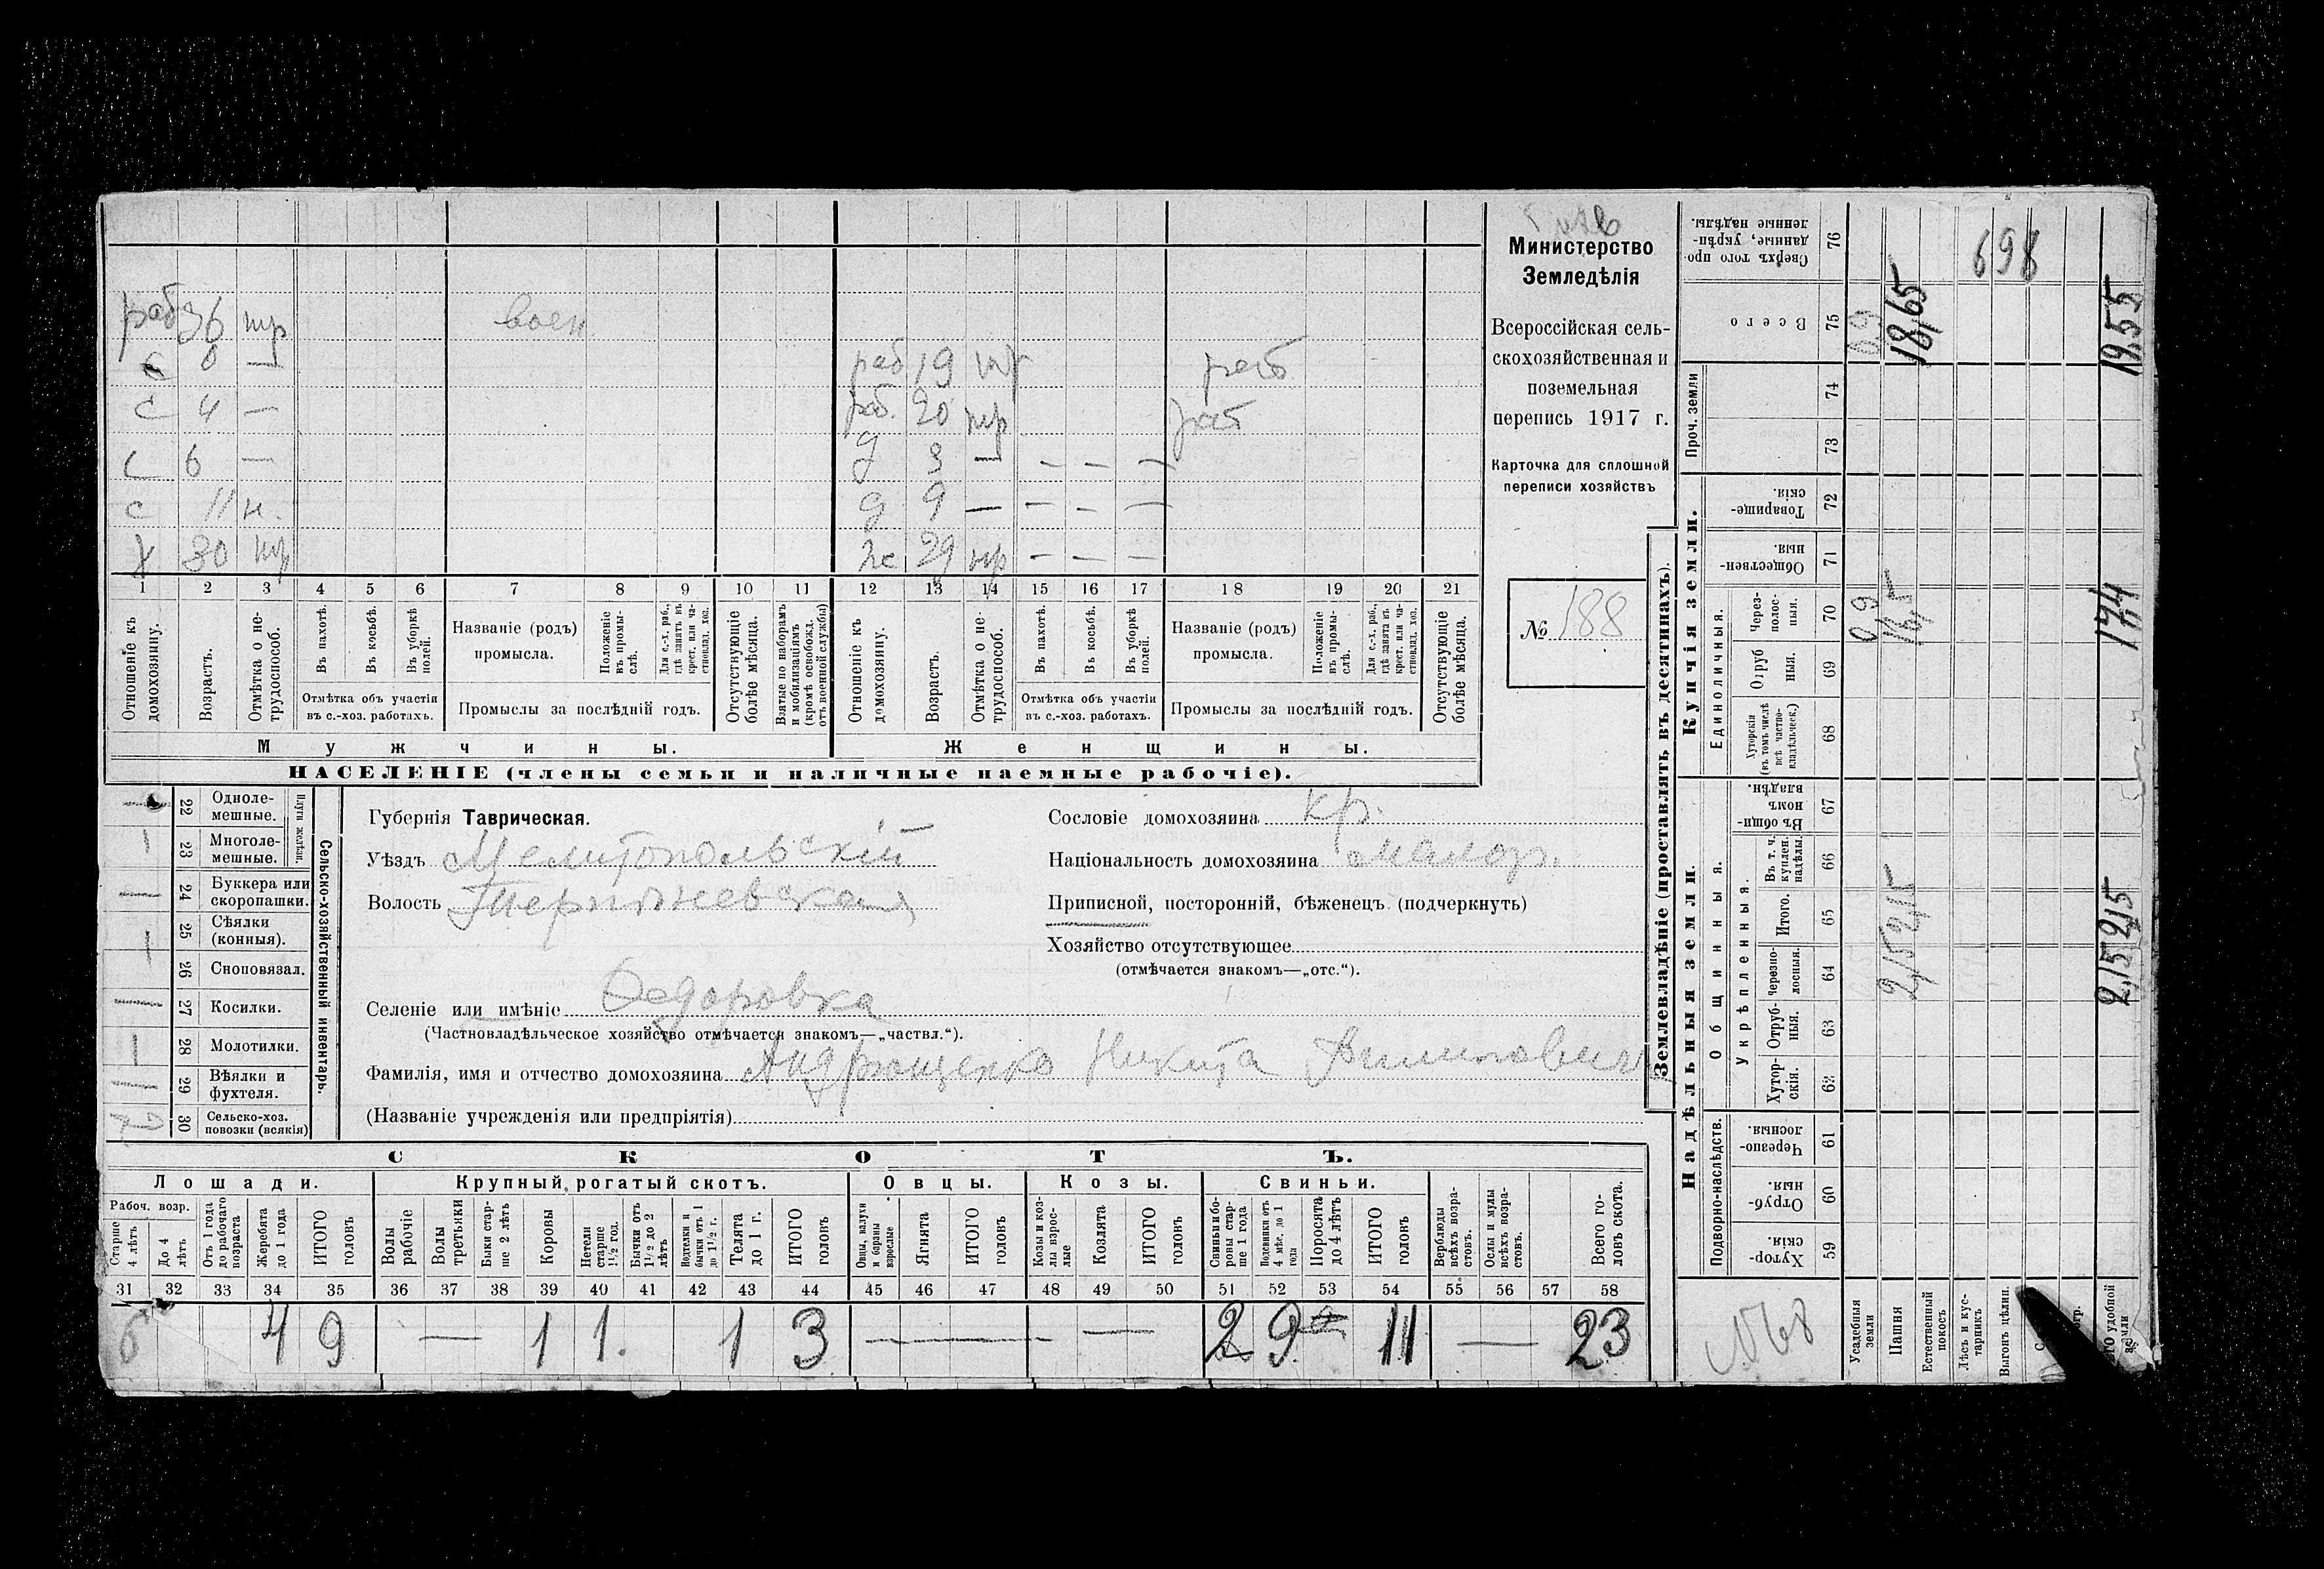 раб 36 нр воен
с 8 — раб 19 нр раб
с 4 — раб. 20 нр раб
с 6 — д 3 — — — —
с 11 н. д 9 — — — —
х 30 нр ж 29 нр — — —
1 2 3 4 5 6 7 8 9 10 11 12 13 14 15 16 17 18 19 20 21
Отношеніе къ домохозяину.
Возрастъ.
Отмѣтка о не-
трудоспособ.
Въ пахотѣ.
Въ косьбѣ.
Въ уборкѣ
полей.
Отмѣтка объ участіи
въ с.-хоз. работахъ.
Названіе (родъ)
промысла.
Положеніе
въ промы-
слѣ.
Для с.-х. раб.,
гдѣ занятъ въ
крест. или ча-
стновлад. хоз.
Промыслы за послѣдній годъ.
Отсутствующіе
болѣе мѣсяца.
Взятые по наборамъ
и мобилизаціямъ
(кромѣ освобожд.
отъ военной службы)
Отношеніе къ
домохозяину.
Возрастъ.
Отмѣтка о не-
трудоспособ.
Въ пахотѣ.
Въ косьбѣ.
Въ уборкѣ
полей.
Отмѣтка объ участіи
въ с.-хоз. работахъ.
Названіе (родъ)
промысла.
Положеніе
въ промы-
слѣ.
Для с.-х. раб.,
гдѣ занята въ
крест. или ча-
стновлад. хоз.
Промыслы за послѣдній годъ.
Отсутствующіе
болѣе мѣсяца.
Мужчины.
Женщины.
НАСЕЛЕНІЕ (члены семьи и наличные наемные рабочіе).
Министерство
Земледѣлія
Всероссійская сель-
скохозяйственная и
поземельная
перепись 1917 г.
Карточка для сплошной
переписи хозяйствъ
№ 188
22 Одноле-
мешные.
23 Многоле-
мешные.
Плуги желѣзн.
24 Буккера или
скоропашки.
25 Сѣялки
(конныя).
26 Сноповязал.
27 Косилки.
28 Молотилки.
29 Вѣялки и
фухтеля.
30 Сельско-хоз.
повозки (всякія)
Сельско-хозяйственный инвентарь.
Губернія Таврическая.
Уѣздъ Мелитопольскій
Волость Терпѣньевская
Селеніе или имѣніе Федоровка
(Частновладѣльческое хозяйство отмѣчается знакомъ—„частвл.“).
Фамилія, имя и отчество домохозяина Андрющенко Никита Филиповичъ
(Названіе учрежденія или предпріятія)
Сословіе домохозяина кр.
Національность домохозяина малор.
Приписной, посторонній, бѣженецъ (подчеркнуть)
Хозяйство отсутствующее
(отмѣчается знакомъ—„отс.“).
СКОТЪ.
Лошади. Крупный рогатый скотъ. Овцы. Козы. Свиньи.
Рабоч. возр.
Старше
4 лѣтъ
До 4
лѣтъ
Отъ 1 года
до рабочаго
возраста
Жеребята
до 1 года
ИТОГО
головъ
Волы
рабочіе
Волы
третьяки
Быки стар-
ше 2 лѣтъ
Коровы
Нетели
старше
1½ год.
Бычки отъ
1½ до 2
лѣтъ
Подтелки и
бычки отъ 1
до 1½ г.
Телята
до 1 г.
ИТОГО
головъ
Овцы, валухи
и бараны
взрослые
Ягнята
ИТОГО
головъ
Козы и коз-
лы взрос-
лые
Козлята
ИТОГО
головъ
Свиньи и бо-
ровы стар-
ше 1 года
Подсвинки отъ
4 мѣс. до 1
года
Поросята
до 4 лѣтъ
ИТОГО
головъ
Верблюды
всѣхъ возра-
стовъ.
Ослы и мулы
всѣхъ возра-
стовъ.
Всего го-
ловъ скота.
31 32 33 34 35 36 37 38 39 40 41 42 43 44 45 46 47 48 49 50 51 52 53 54 55 56 57 58
4 9 — 1 1. 1 3 — — 2 9 11 — 23
Землевладѣніе (проставлять въ десятинахъ).
Купчія земли.
Сверхъ того про-
данные, укрѣп-
ленные надѣлы.
76
Всего
75
Проч. земли
74
73
Товарище-
скія.
72
Обществен-
ныя.
71
Единоличныя.
Через-
полос-
ныя.
70
Отруб
ныя.
69
Хуторскія
(въ томъ числѣ
всѣ частно-
владѣльческ.)
68
Надѣльныя земли.
Общинныя.
Въ общи-
номъ
владѣн.
67
Укрѣпленныя.
Въ т. ч.
куплен.
надѣлы.
66
Итого.
65
Черезпо-
лосныя.
64
Отруб-
ныя.
63
Хутор-
скія.
62
Подворно-наслѣдств.
Черезпо-
лосныя
61
Отруб-
ныя.
60
Хутор-
скія
59
Усадебныя
земли
0,9 0,9
Пашня
2,15 2,15 16,5 18,65
Естественный
покосъ
Лѣсъ и кус-
тарникъ
Выгонъ цѣлин.
удобной
земли
2,15 2,15 17,4 19,55
698
№68